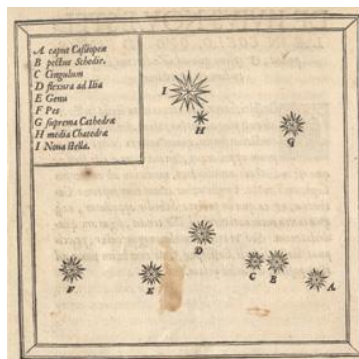 A caput Cassiopeæ
B pectus Schedir.
C Cingulum
D flexura ad Ilia
E Genu
F Pes
G suprema Cathedræ
H media Chatedræ
I Nova stella.
I
H
G
D
C B
F E A